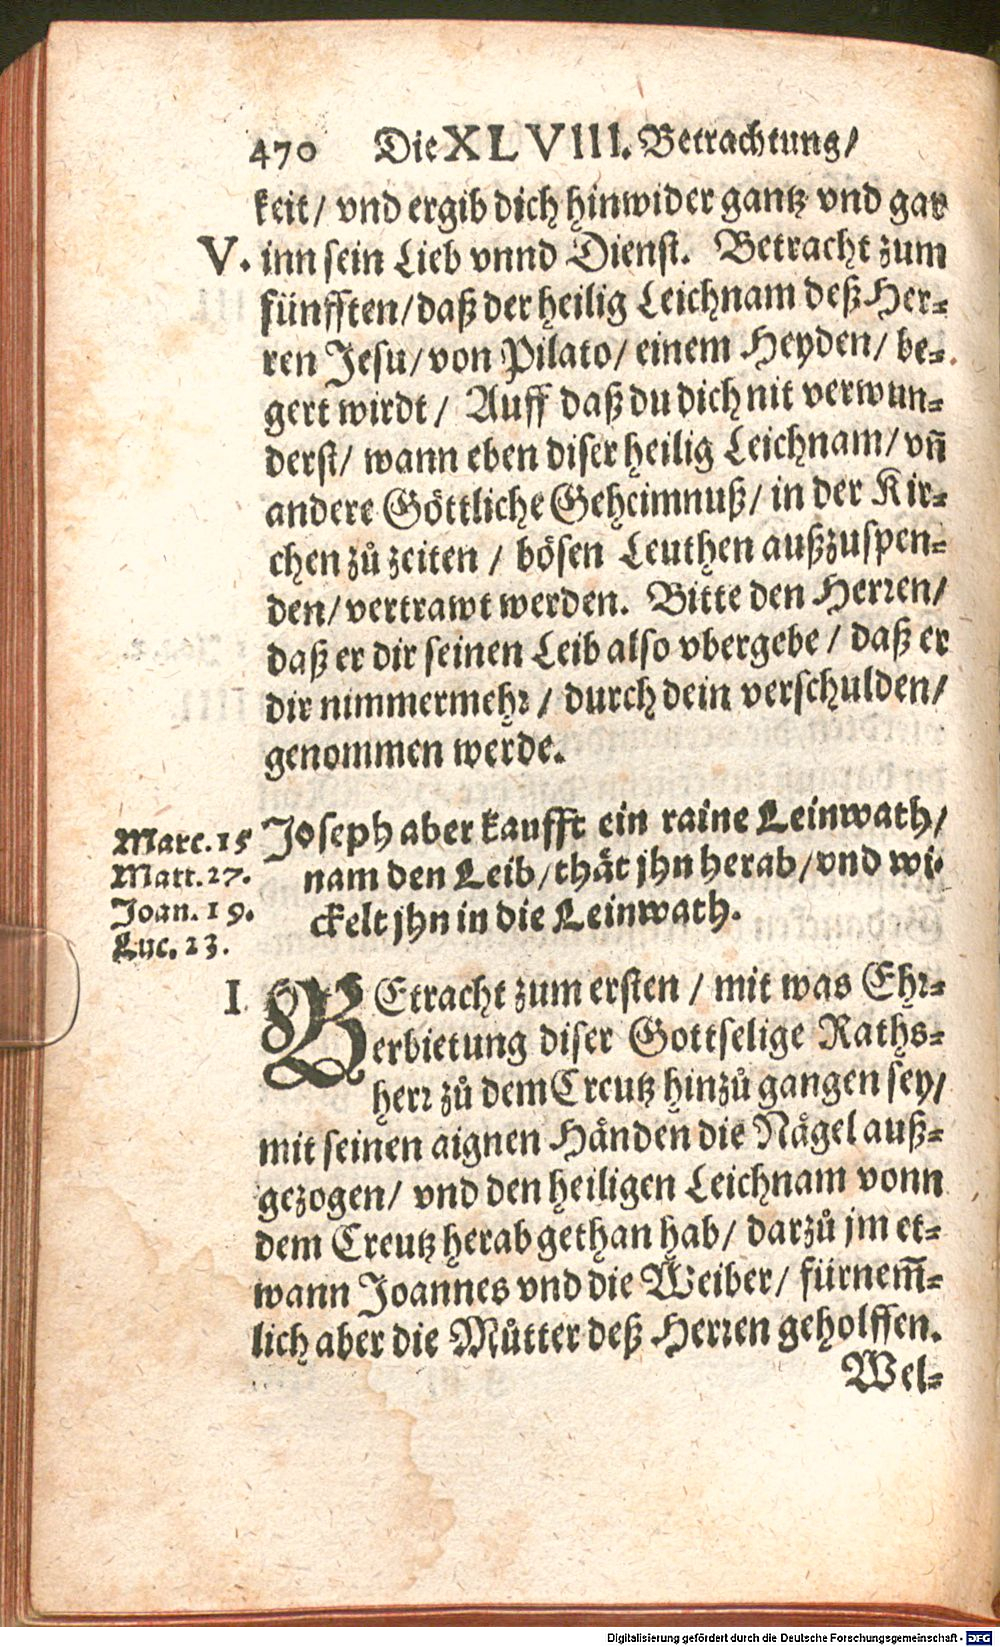 470 Die XLVIII. Betrachtung/
keit/ vnd ergib dich hinwider gantz vnd gar
V. inn sein Lieb vnnd Dienst. Betracht zum
fünfften/ daß der heilig Leichnam deß Her-
ren Jesu/ von Pilato/ einem Heyden/ be-
gert wirdt/ Auff daß du dich nit verwun-
derst/ wann eben diser heilig Leichnam/ vn̄
andere Göttliche Geheimnuß/ in der Kir-
chen zů zeiten / bösen Leuthen außzuspen-
den/ vertrawt werden. Bitte den Herren/
daß er dir seinen Leib also vbergebe / daß er
dir nimmermehr / durch dein verschulden/
genommen werde.
Joseph aber kaufft ein raine Leinwath/
nam den Leib/ thät jhn herab/ vnd wi-
ckelt jhn in die Leinwath.
Marc. 15
Matt. 27.
Joan. 19.
Luc. 23.
I BEtracht zum ersten / mit was Ehr-
erbietung diser Gottselige Raths-
herr zů dem Creutz hinzů gangen sey/
mit seinen aignen Händen die Nägel auß-
gezogen/ vnd den heiligen Leichnam vonn
dem Creutz herab gethan hab/ darzů jm et-
wann Joannes vnd die Weiber/ fürnem̄-
lich aber die Můtter deß Herren geholffen.
Wel-
Digitalisierung gefördert durch die Deutsche Forschungsgemeinschaft - DFG